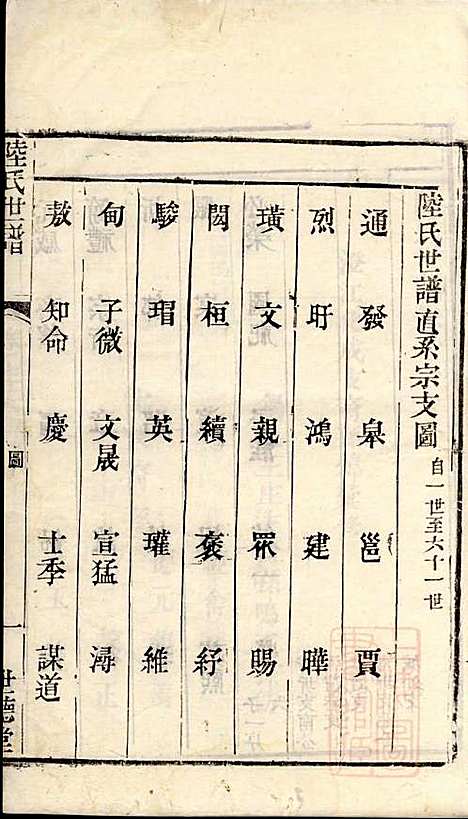 陸氏世譜直系宗支圖 自一世至六十一世
通 發 皐 邕 賈
烈 盱 鴻 建 曄
璜 文 親 眾 賜
閎 桓 續 褒 紆
駿 瑁 英 瓘 維
甸 子微 文晟 宣猛 潯
敖 知命 慶 士季 謀道
陸氏世譜 圖 一 世德堂